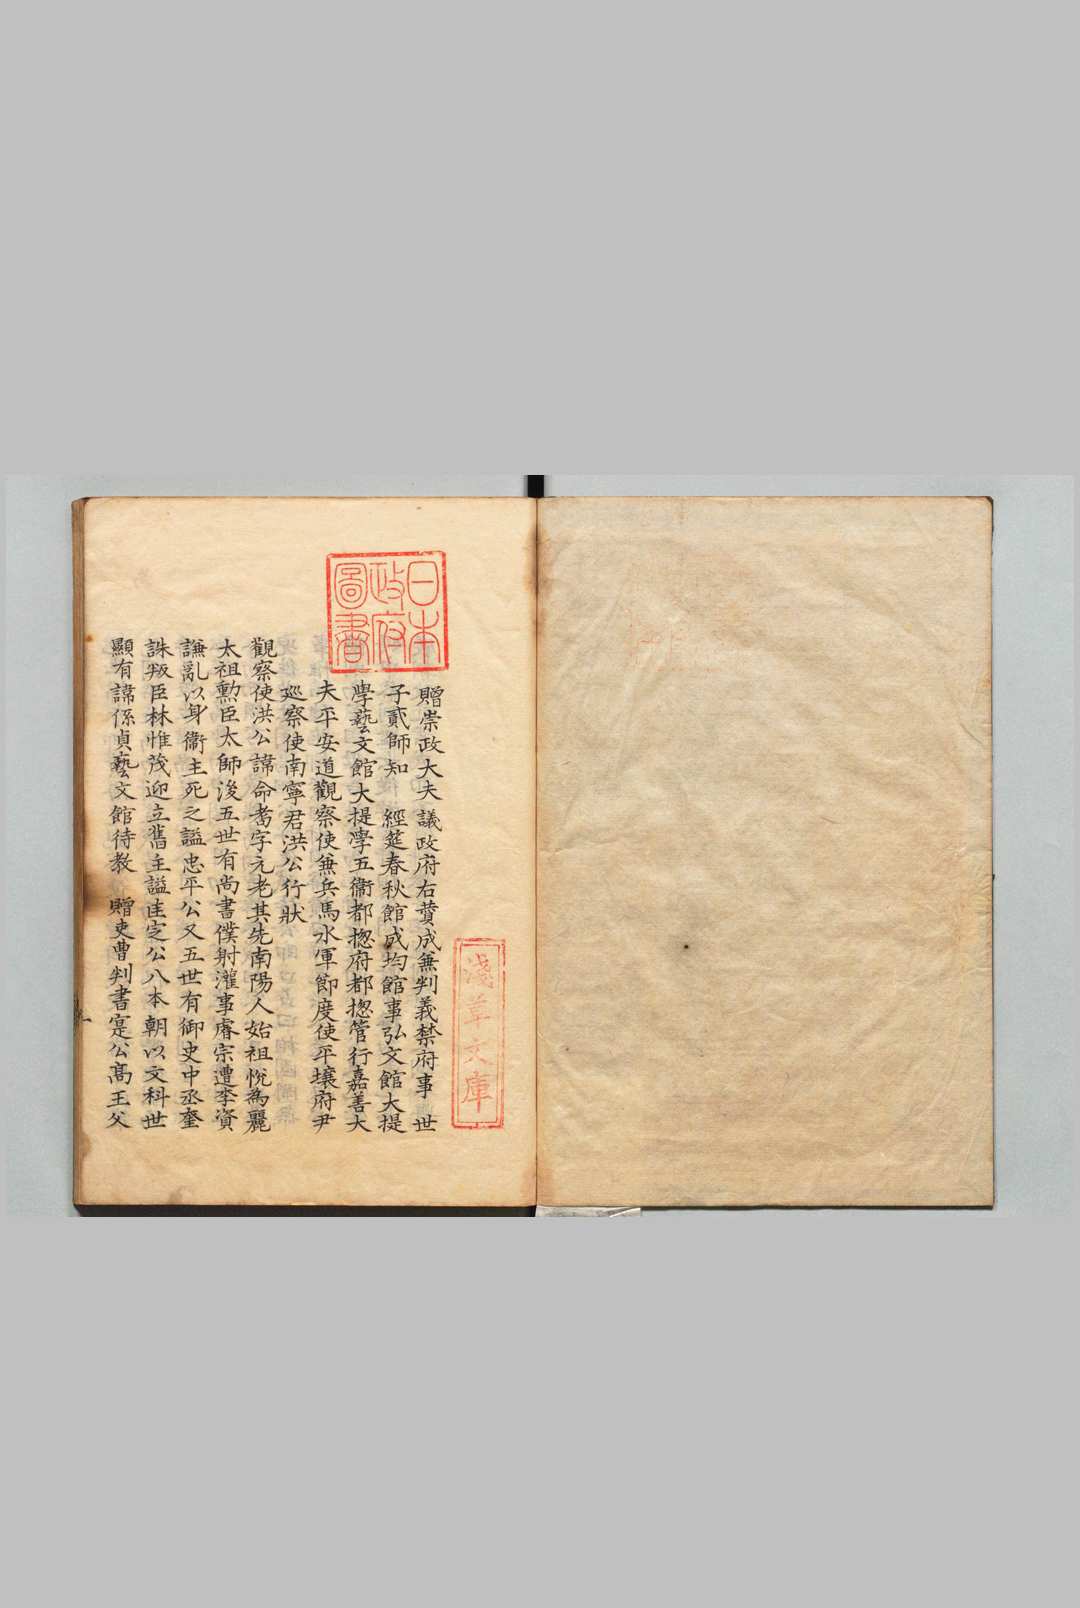 日本
政府
圖書
淺草文庫
贈崇政大夫議政府右贊成兼判義禁府事 世
子貳師知 經筵春秋館成均館事弘文館大提
學藝文館大提學五衞都摠府都摠管行嘉善大
夫平安道觀察使兼兵馬水軍節度使平壤府尹
巡察使南寧君洪公行狀
觀察使洪公諱命耉字元老其先南陽人始祖悅爲麗
太祖勳臣太師後五世有尚書僕射灌事睿宗遭李資
謙亂以身衞主死之謚忠平公又五世有御史中丞奎
誅叛臣林惟茂迎立舊主謚匡定公八本朝以文科世
顯有諱係貞藝文館待教 贈吏曹判書寔公高王父